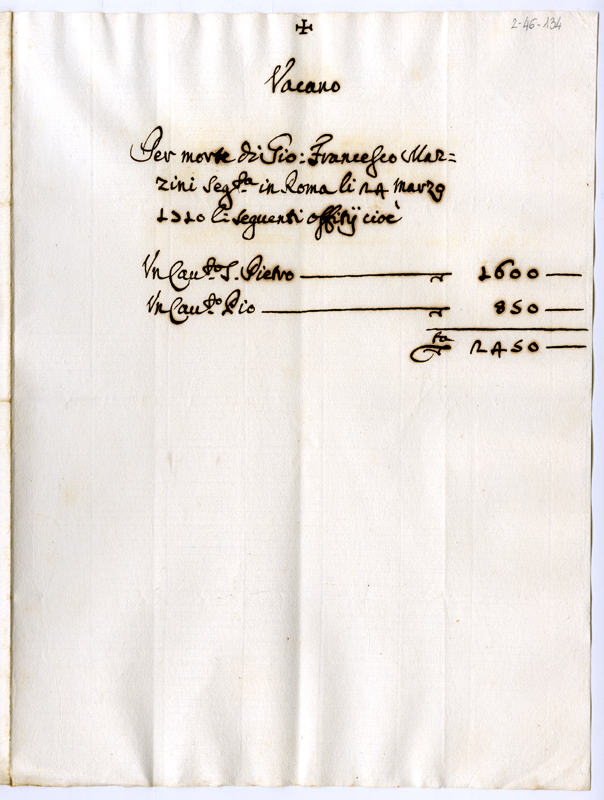 ✠
2-46-134
Vacano
Per morte di Gio: Francesco Mar=
zini seg.ta in Roma li 24 marzo
1710 li seguenti offitij cioè
Un Cau.to S. Pietro — 1600 —
Un Cau.to Pio — 850 —
2450 —